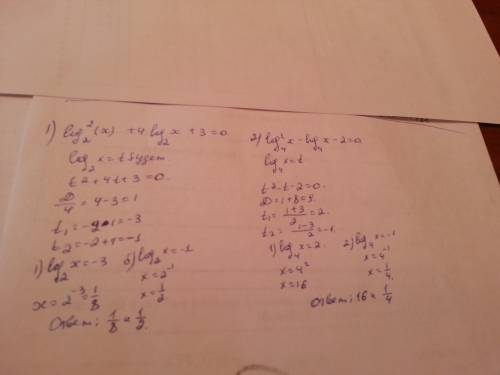 1) log₂²(x) + 4 log₂ x + 3 = 0
log₂ x = t будет
t² + 4t + 3 = 0.
D/4 = 4 - 3 = 1
t₁ = -2 - 1 = -3
t₂ = -2 + 1 = -1
1) log₂ x = -3
x = 2⁻³ = 1/8
б) log₂ x = -1
x = 2⁻¹
x = 1/2.
Ответ: 1/8 и 1/2.
2) log₄² x - log₄ x - 2 = 0
log₄ x = t
t² - t - 2 = 0.
D = 1 + 8 = 9.
t₁ = (1+3)/2 = 2.
t₂ = (1-3)/2 = -1.
1) log₄ x = 2.
x = 4²
x = 16
2) log₄ x = -1
x = 4⁻¹
x = 1/4.
Ответ: 16 и 1/4